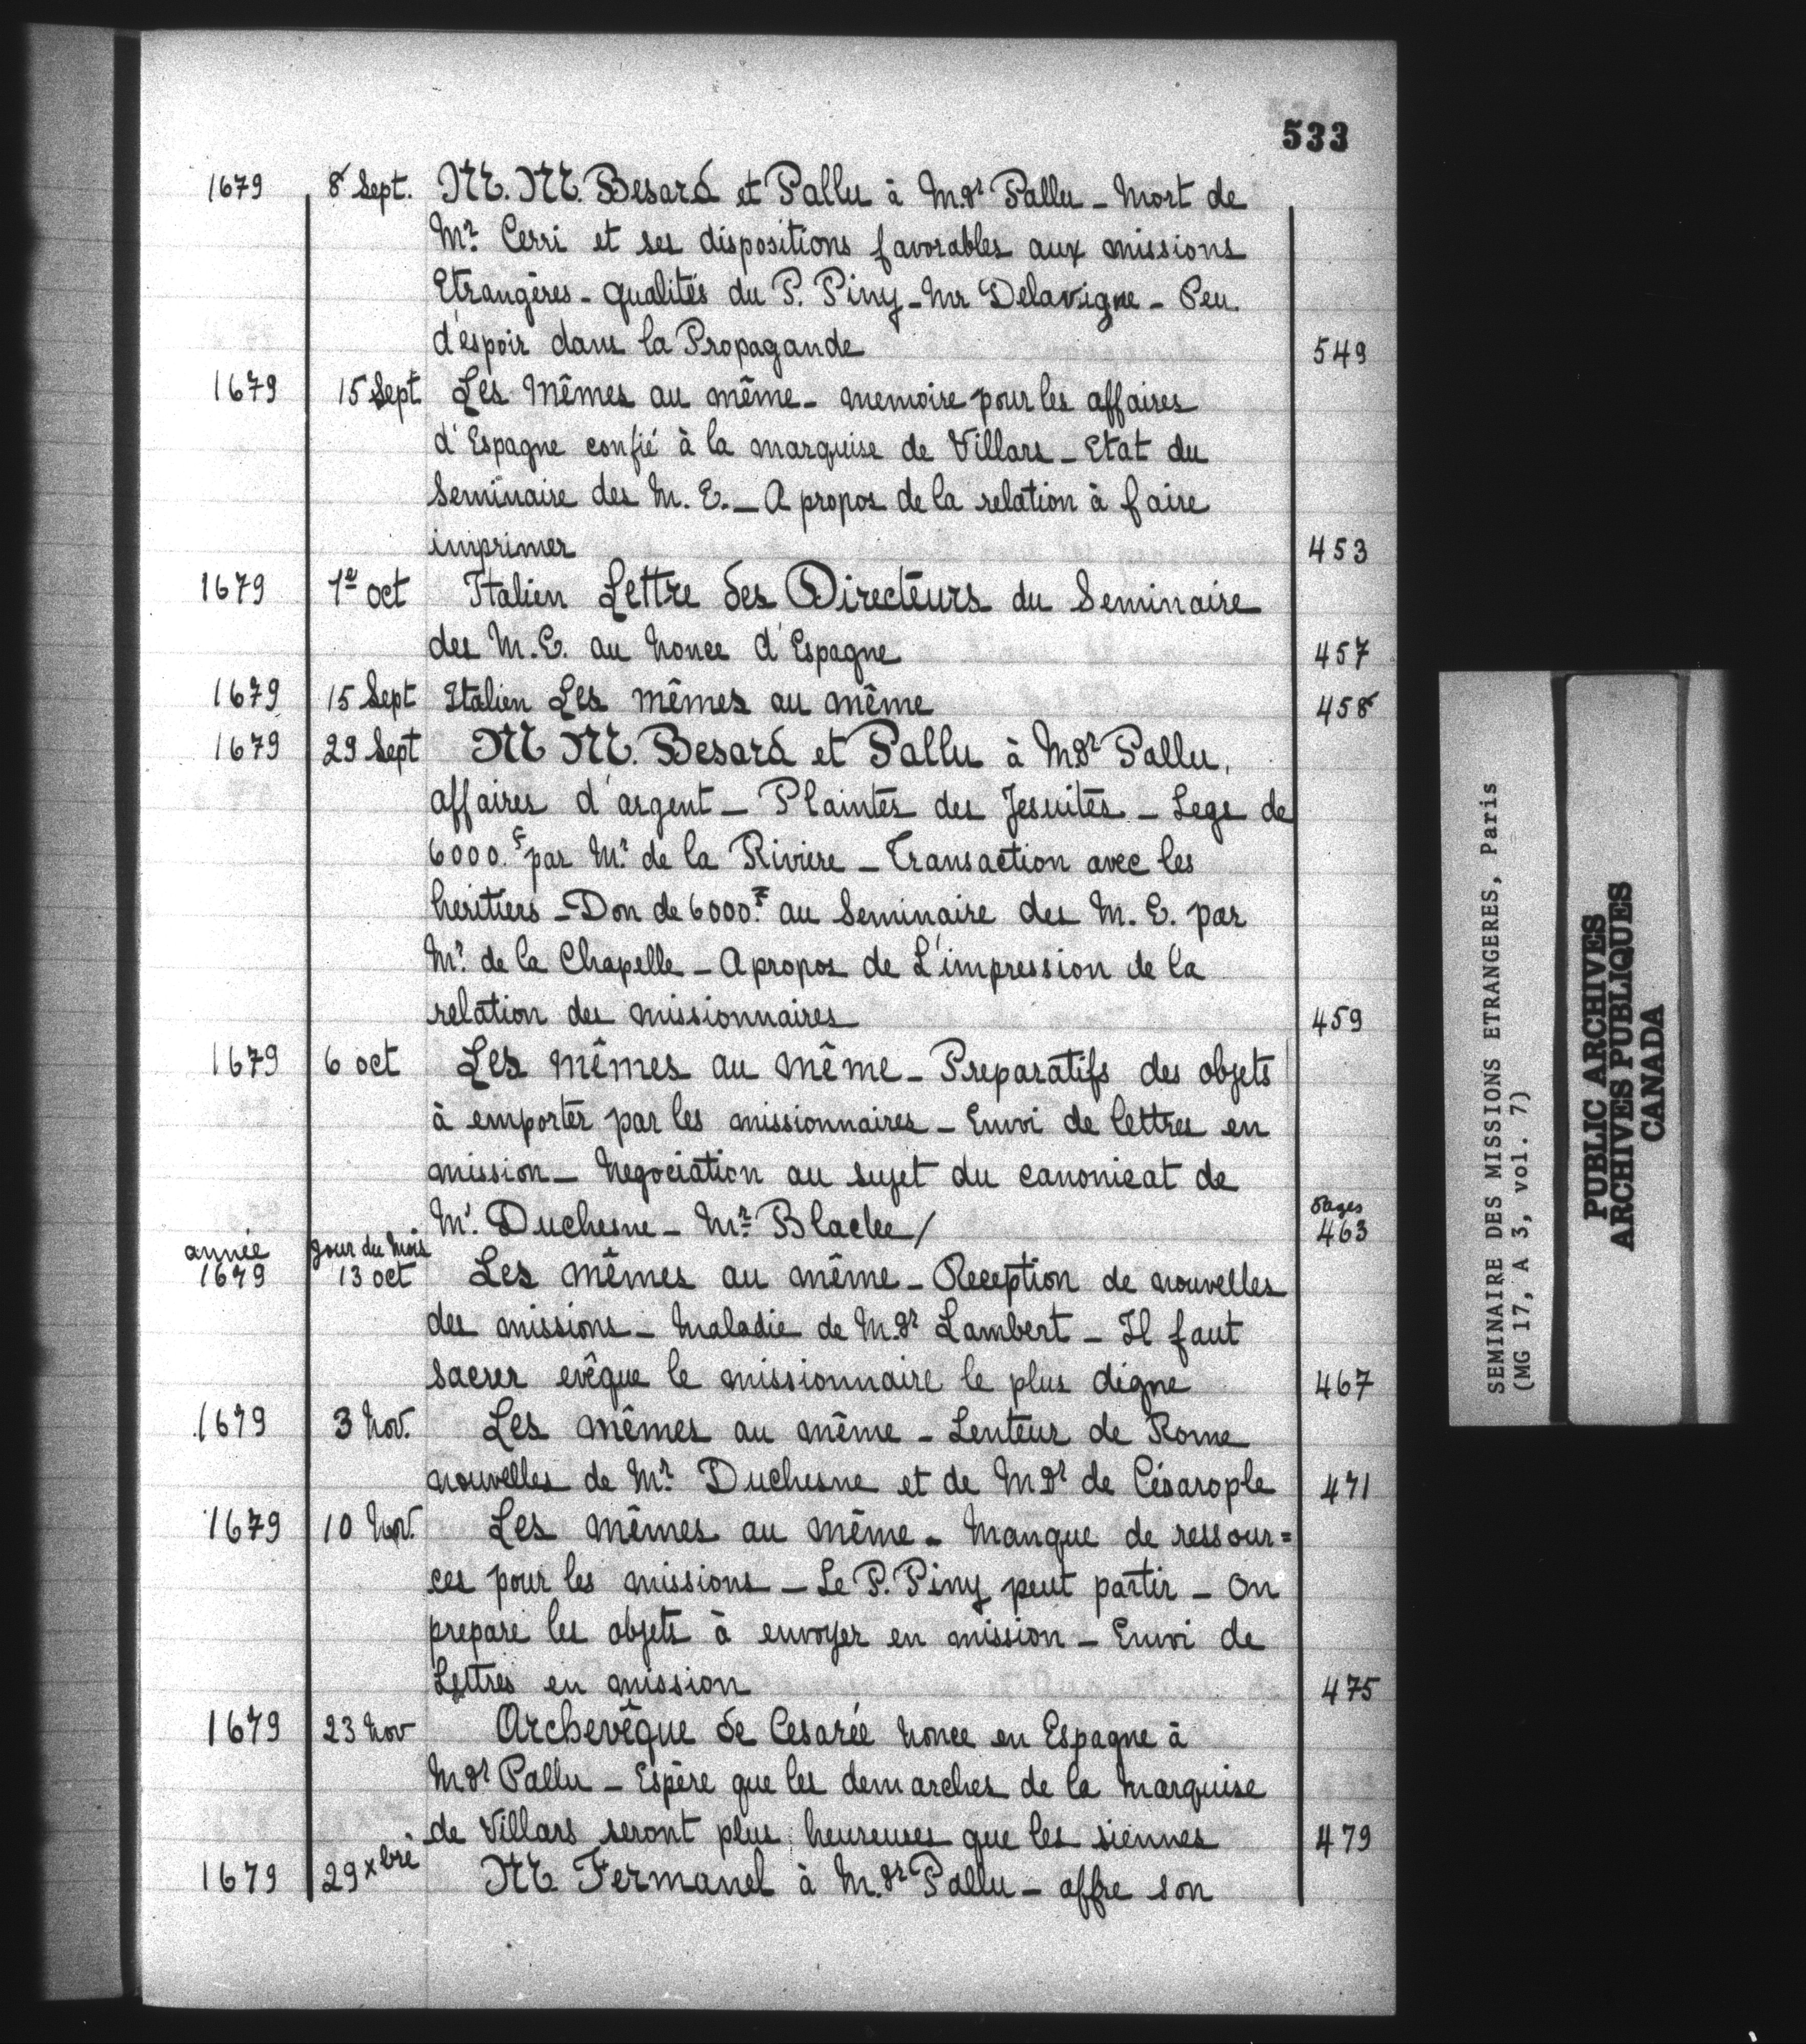 533
1679 8 Sept. M. M. Besard et Pallu à Mgr Pallu - Mort de
Mr Cerri et ses dispositions favorables aux missions
Etrangères - qualités du P. Piny - Mr Delavigne - Peu
d'espoir dans la Propagande 549
1679 15 Sept Les Mêmes au même - memoire pour les affaires
d'Espagne confié à la marquise de Villars - Etat du
Seminaire des M. E. - A propos de la relation à faire
imprimer 453
1679 1er oct Italien Lettre des Directeurs du Seminaire
des M. E. au Nonce d'Espagne 457
1679 15 Sept Italien Les mêmes au même 458
1679 29 Sept M M. Besard et Pallu à Mgr Pallu.
affaires d'argent - Plaintes des Jesuites - Legs de
6000.F par Mr de la Riviere - Transaction avec les
heritiers - Don de 6000F au Seminaire des M. E. par
Mr de la Chapelle - A propos de L'impression de la
relation des missionnaires 459
1679 6 oct Les mêmes au même - Preparatifs des objets
à emporter par les missionnaires - Envoi de lettres en
mission - Negociation au sujet du canonicat de
Pages
Mr. Duchesne - Mr / 463
année jour du Mois
1679 13 oct Les mêmes au même - Reception de nouvelles
des missions - Maladie de Mgr Lambert - Il faut
Sacrer evêque le missionnaire le plus digne 467
1679 3 Nov. Les mêmes au même - Lenteur de Rome
nouvelles de Mr Duchesne et de Mgr de Césarople 471
1679 10 Nov. Les mêmes au même - Manque de ressour=
ces pour les missions - Le P. Piny peut partir - On
prepare les objets à envoyer en mission - Envoi de
Lettres en mission 475
1679 23 Nov Archevêque de Cesarée Nonce en Espagne à
Mgr Pallu - Espère que les demarches de la Marquise
de Villars seront plus heureuses que les siennes 479
1679 29 xbre M Fermanel à Mgr Pallu - offre son
SEMINAIRE DES MISSIONS ETRANGERES, Paris
(MG 17, A 3, vol. 7)
PUBLIC ARCHIVES
ARCHIVES PUBLIQUES
CANADA